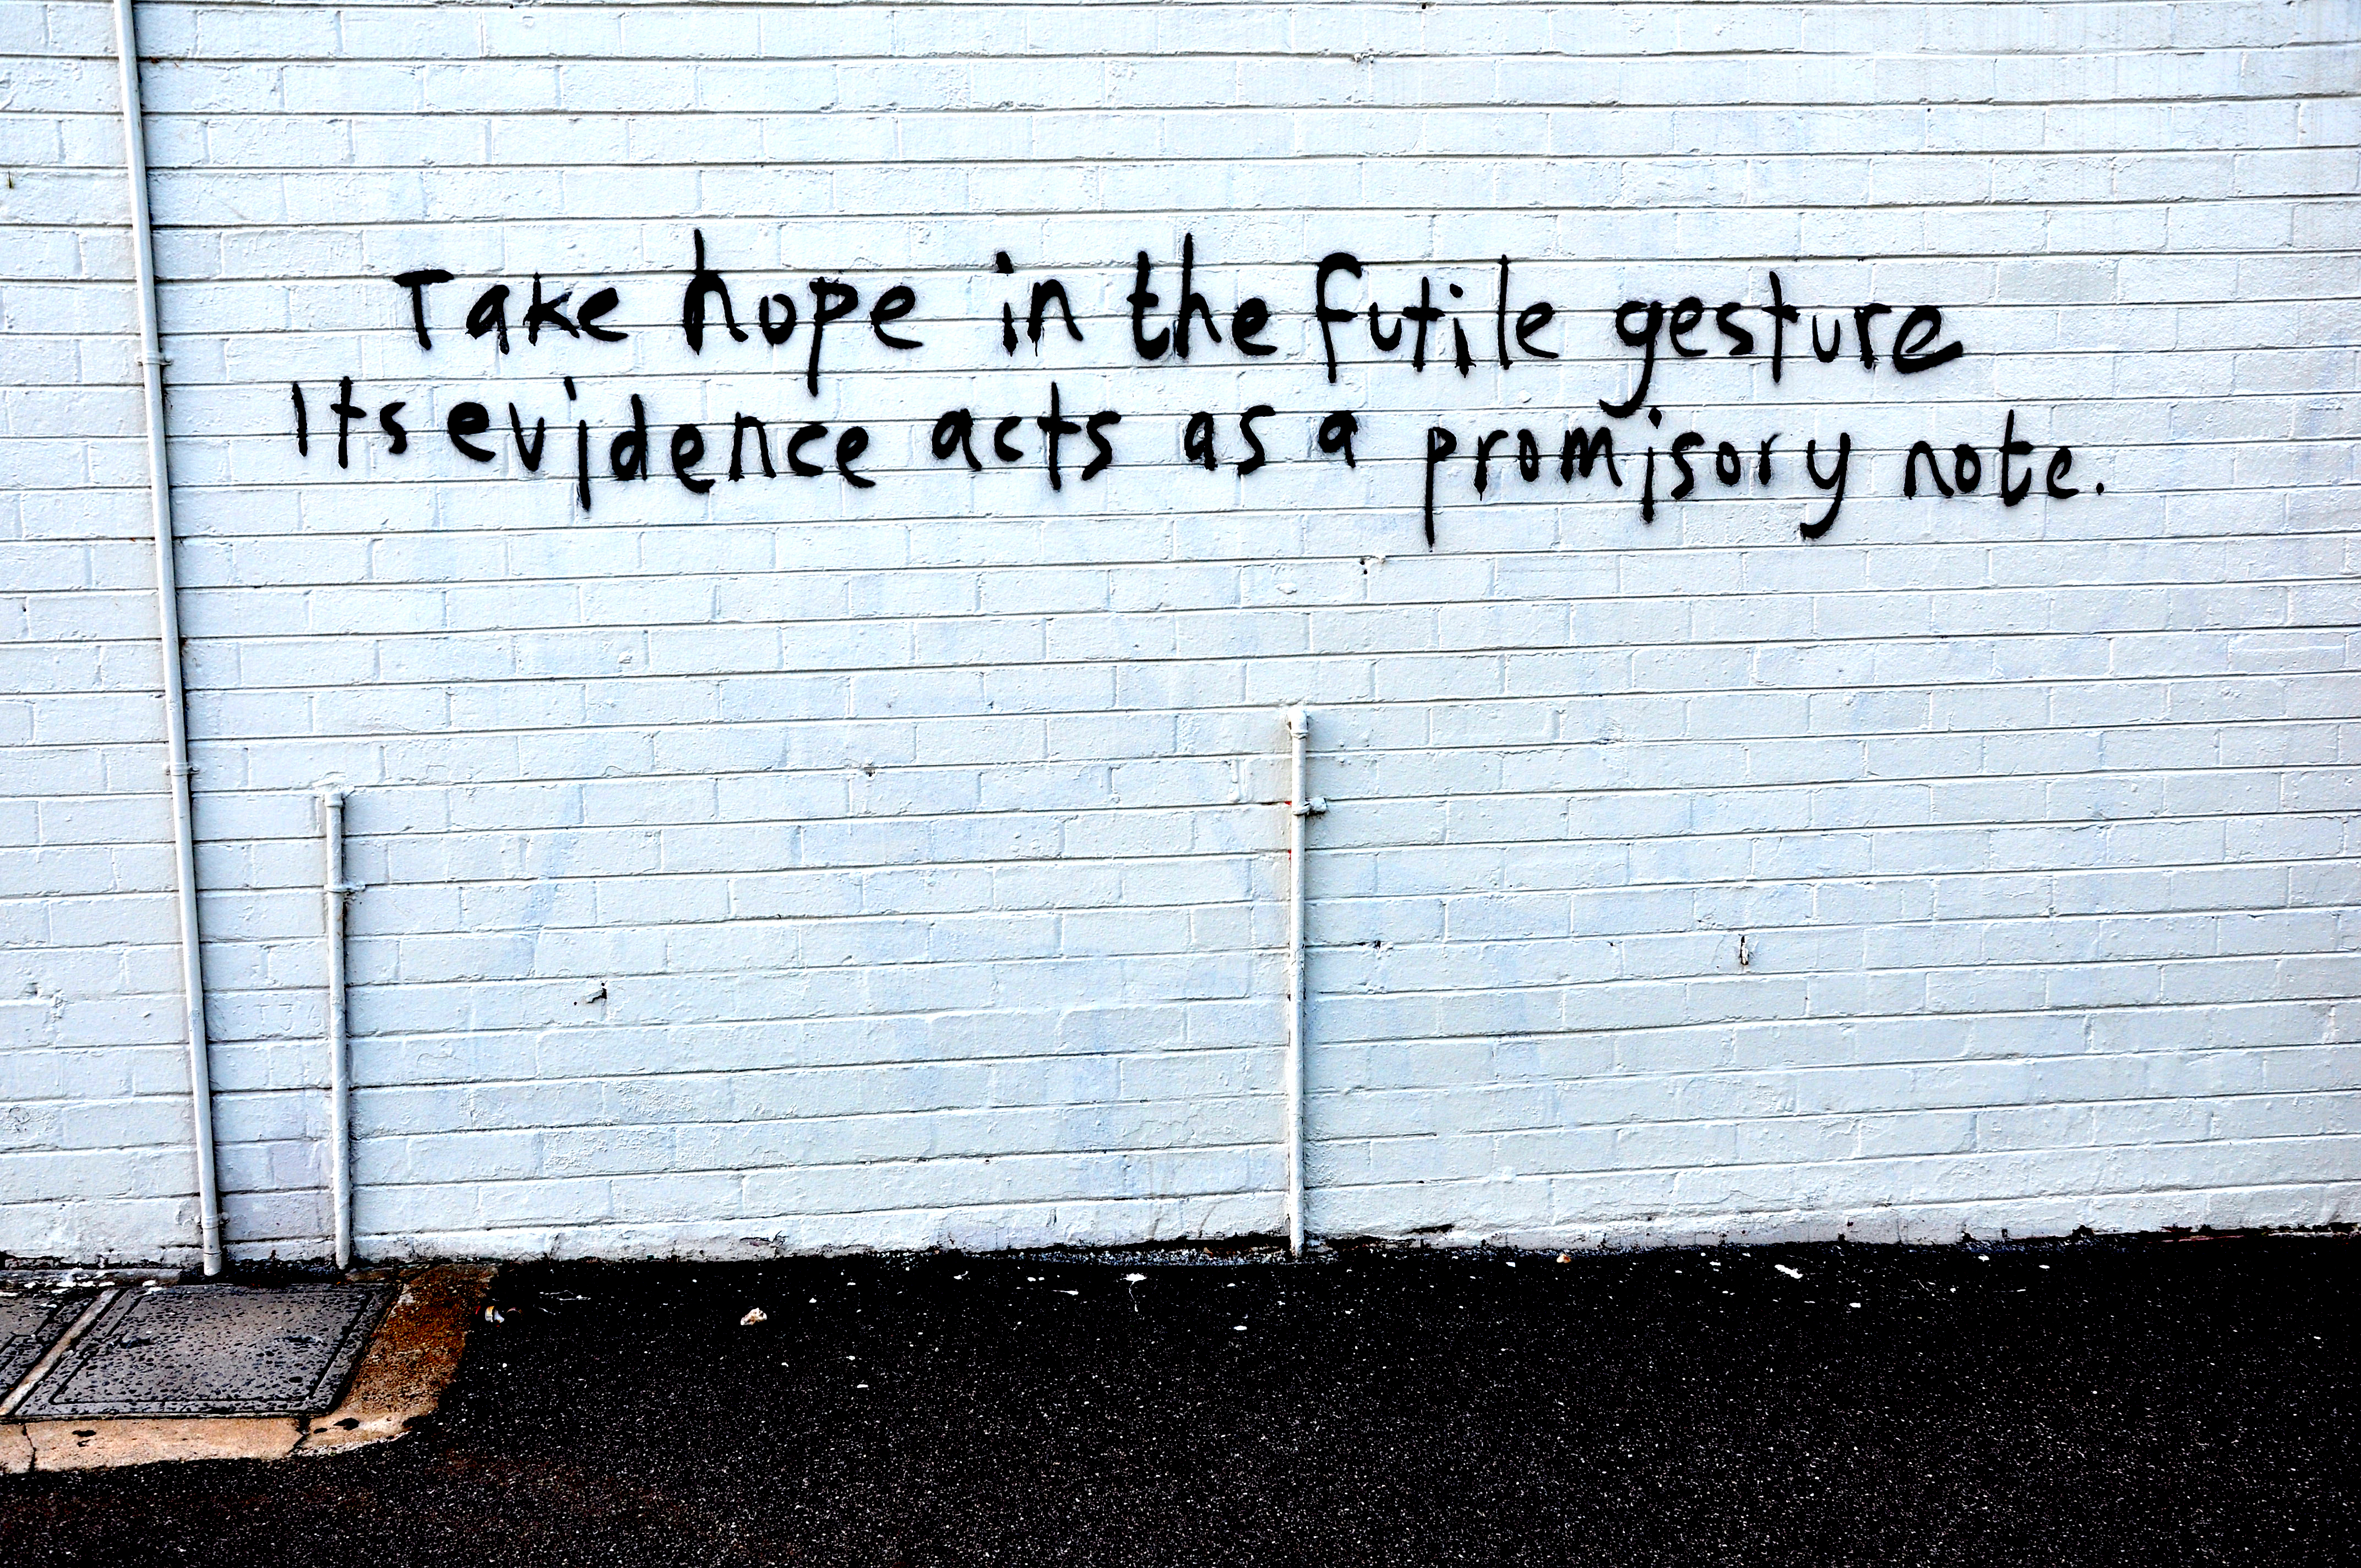 Take hope in the futile gesture
Its evidence acts as a promisory note.